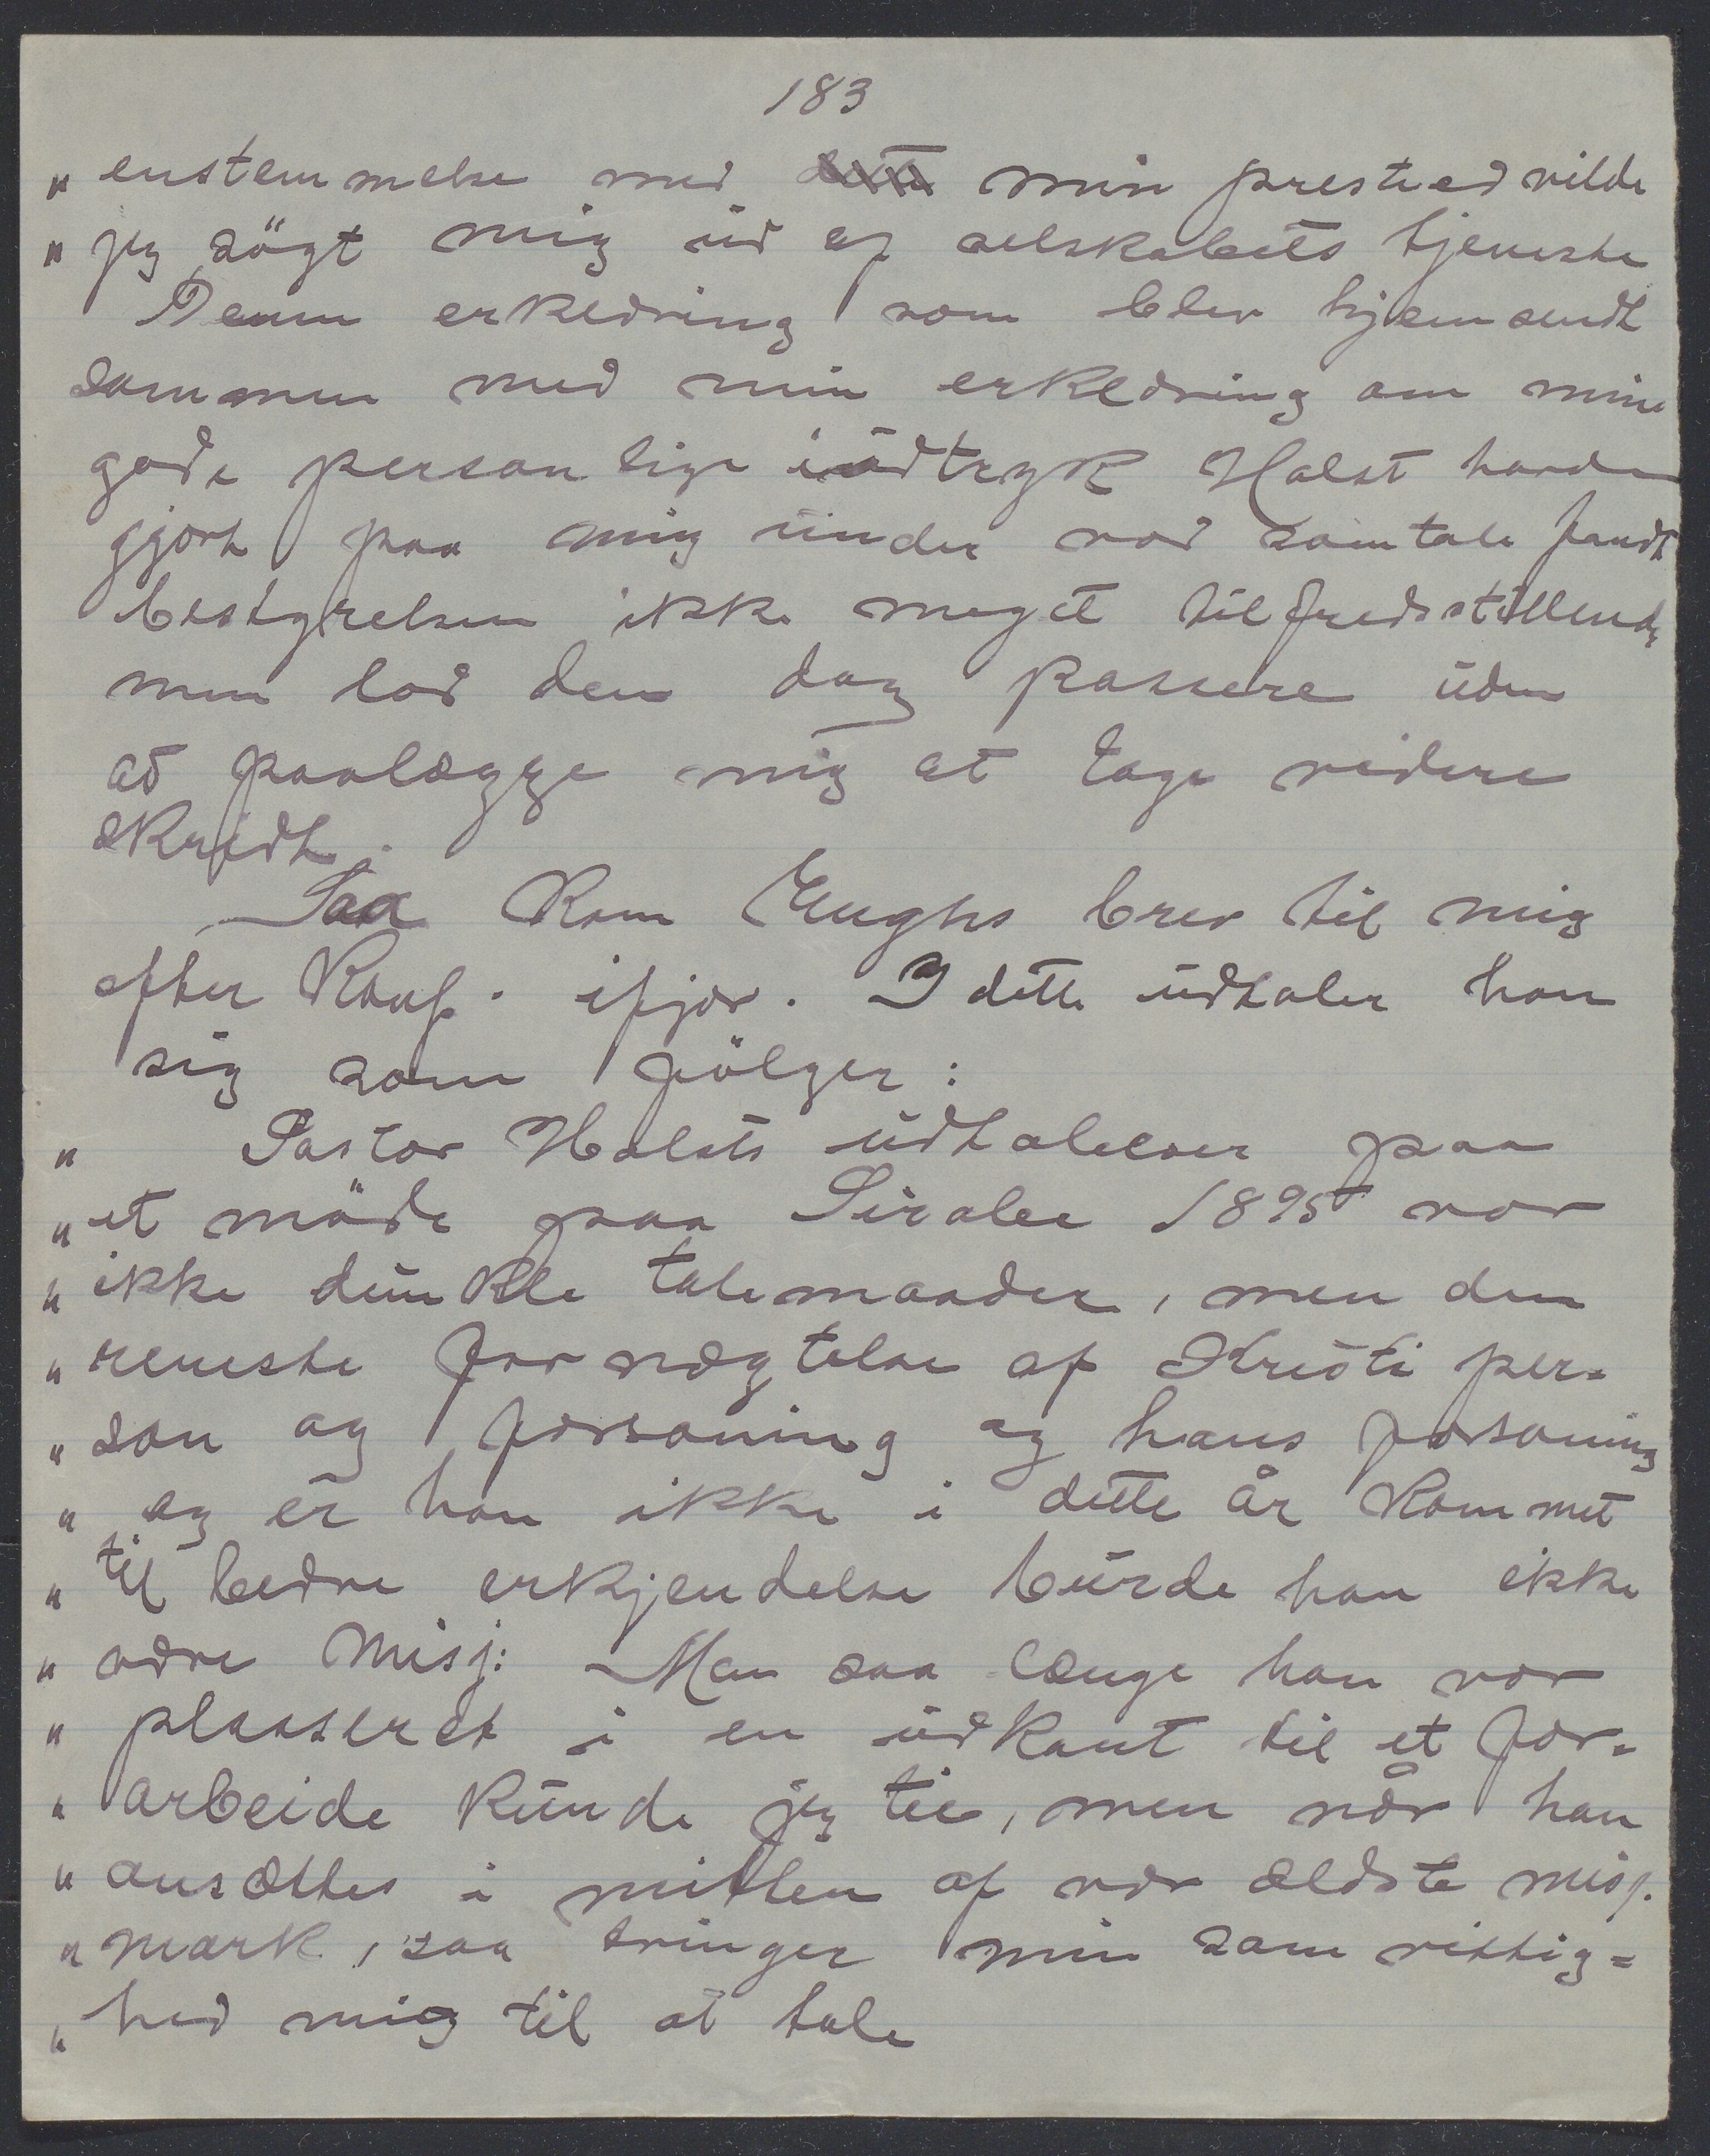 183
" enstemmelse med min presteed vilde
" jeg søgt mig ud af selskabets tjeneste
Denne erklæring som blev hjemsendt
sammen med min erklæring om mine
gode personlige indtryk Halst havde
gjort paa mig under vor samtale fandt
bestyrelsen ikke meget tilfredsstillende,
men lod den dog passere uden
at paalægge mig at tage videre
skridt.
Saa kom Enghs brev til mig
efter Konf. ifjor. I dette udtaler han
sig som følger:
" Pastor Halsts udtalelser paa
" et møde paa Sirabe 1895 var
" ikke dunkle talemaader, men den
" reneste fornægtelse af Kristi per=
" son og forsoning og hans forsoning
" og er han ikke i dette år kommet
" til bedre erkjendelse burde han ikke
" være Misj: Men saa længe han var
" plasseret i en udkant til et for=
" arbeide kunde jeg tie, men når han
" ansættes i mitten af vor ældste misj.
" mark, saa tvinger min samvittig=
" hed mig til at tale